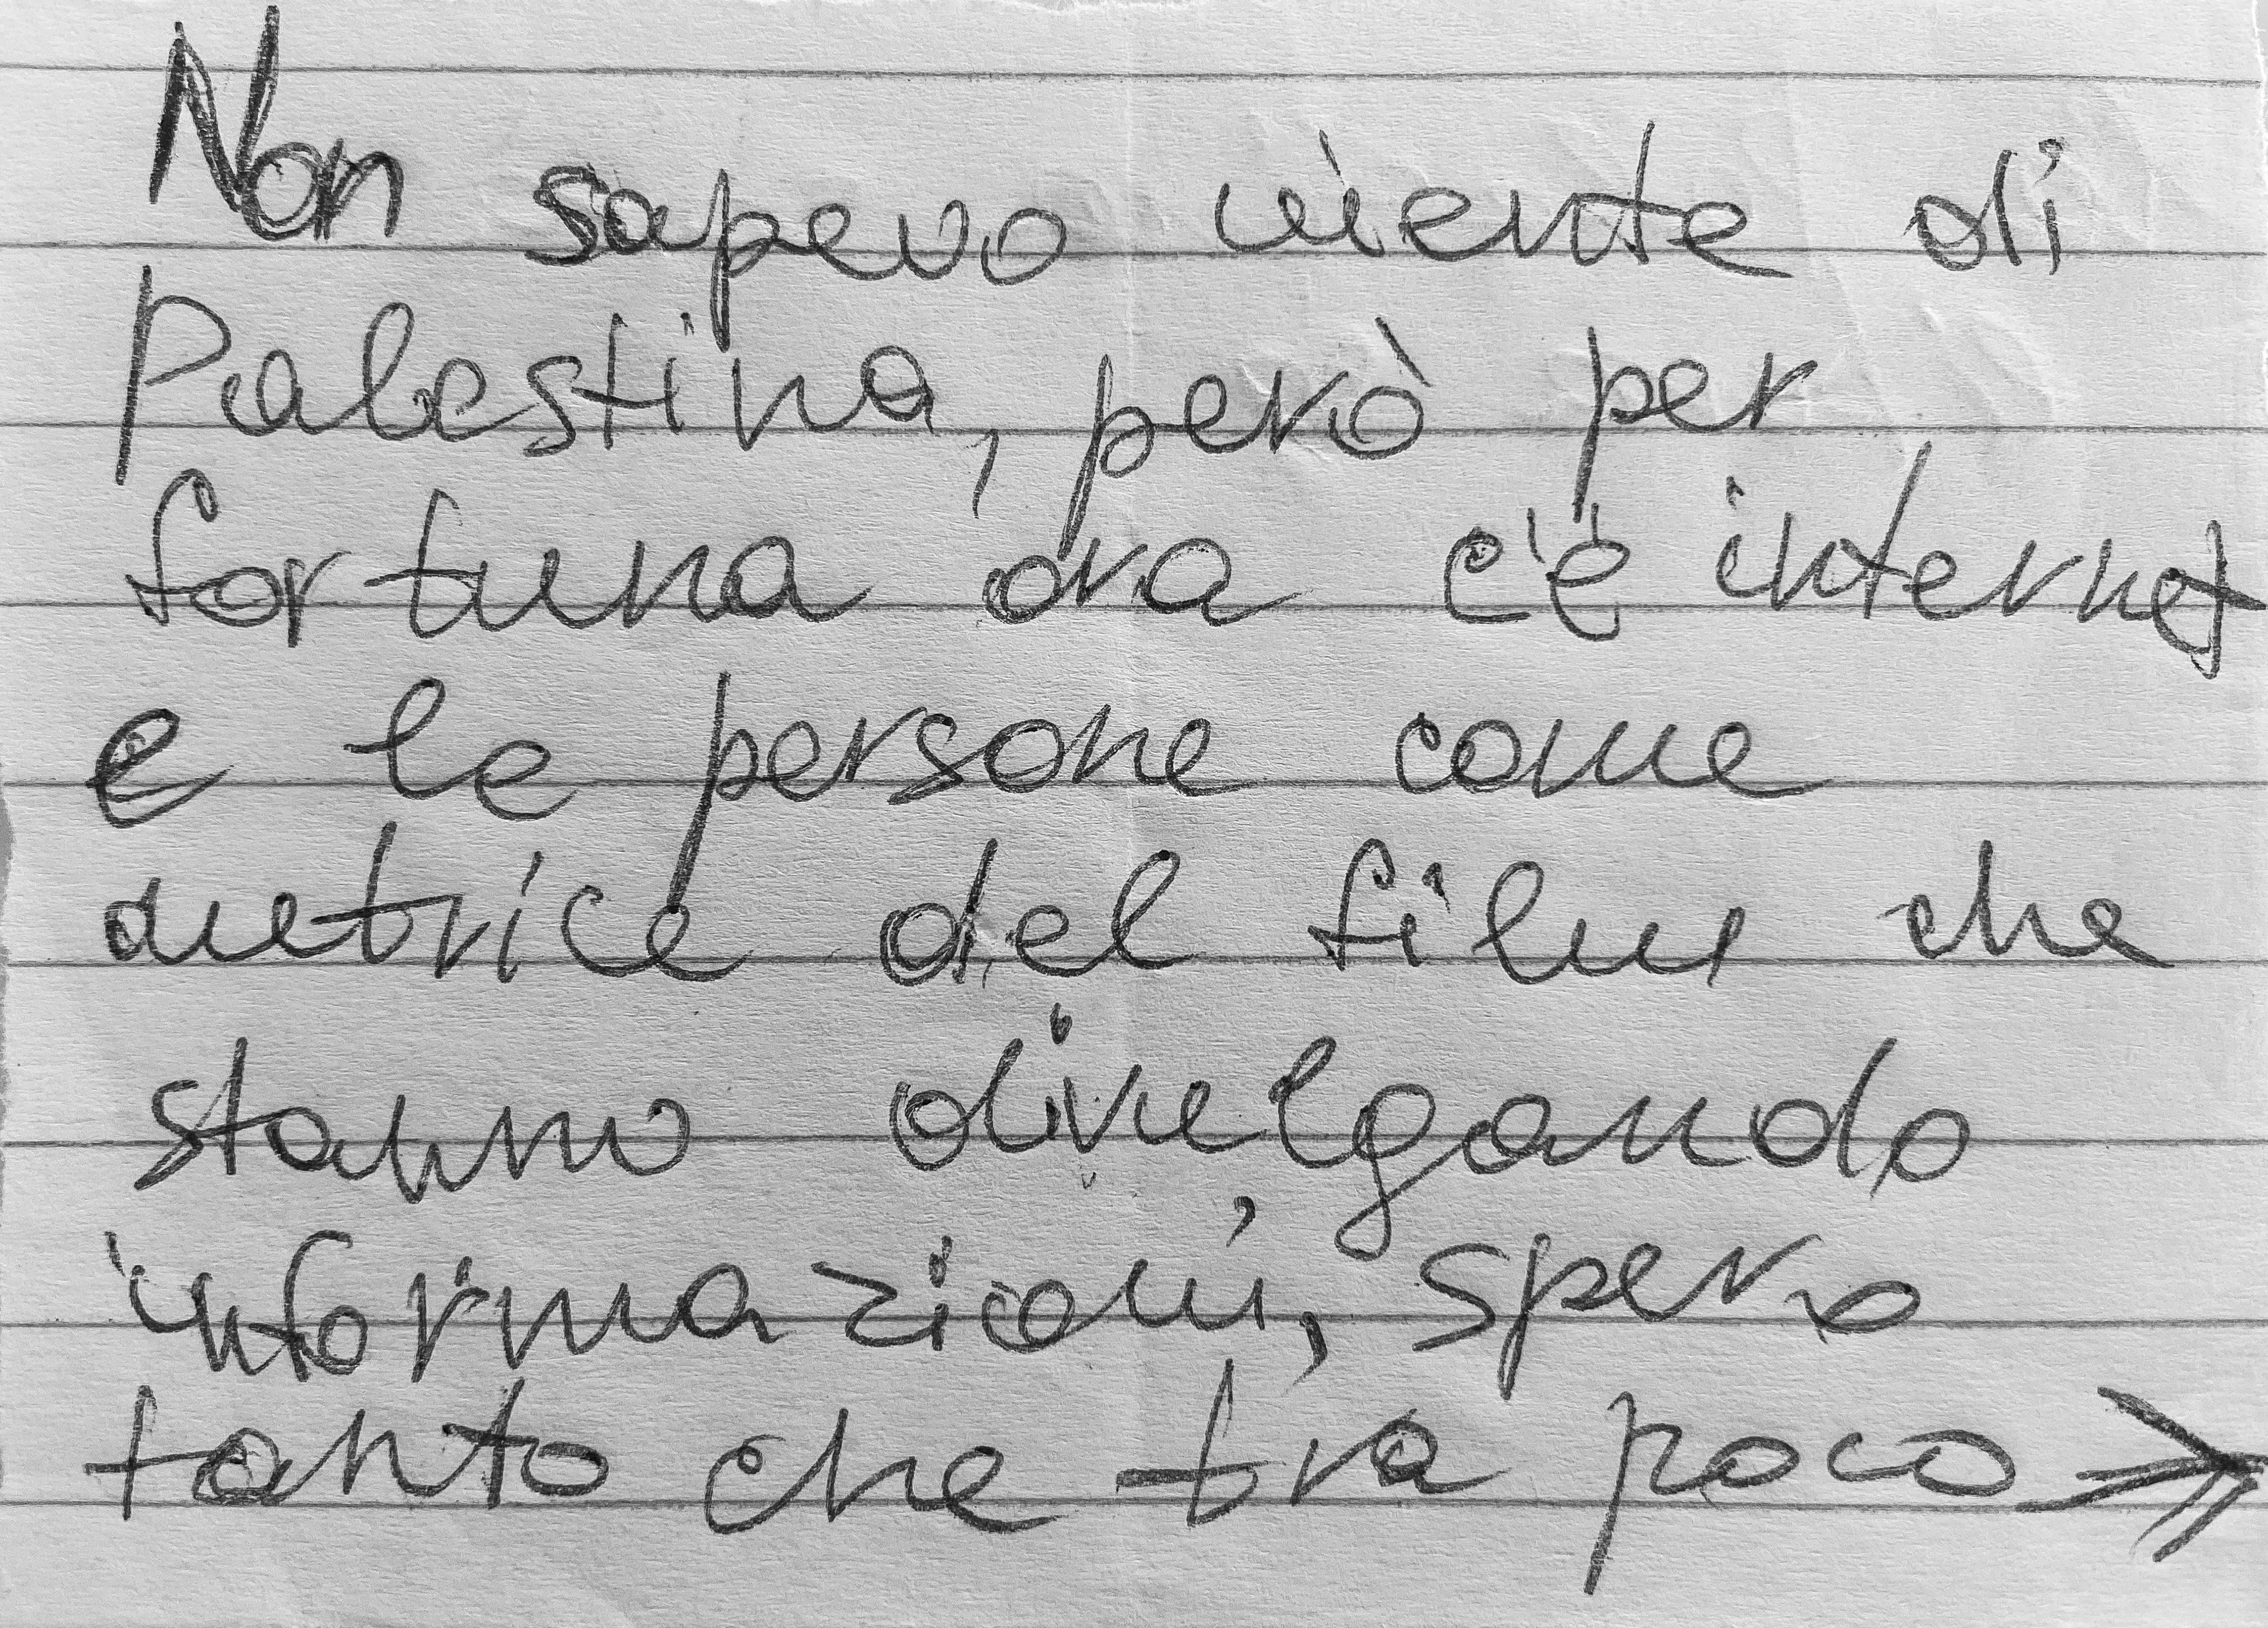 Non sapevo niente di
Palestina, però per
fortuna ora c'è internet
e le persone come
autrice del film che
stanno divulgando
informazioni, spero
tanto che tra poco →